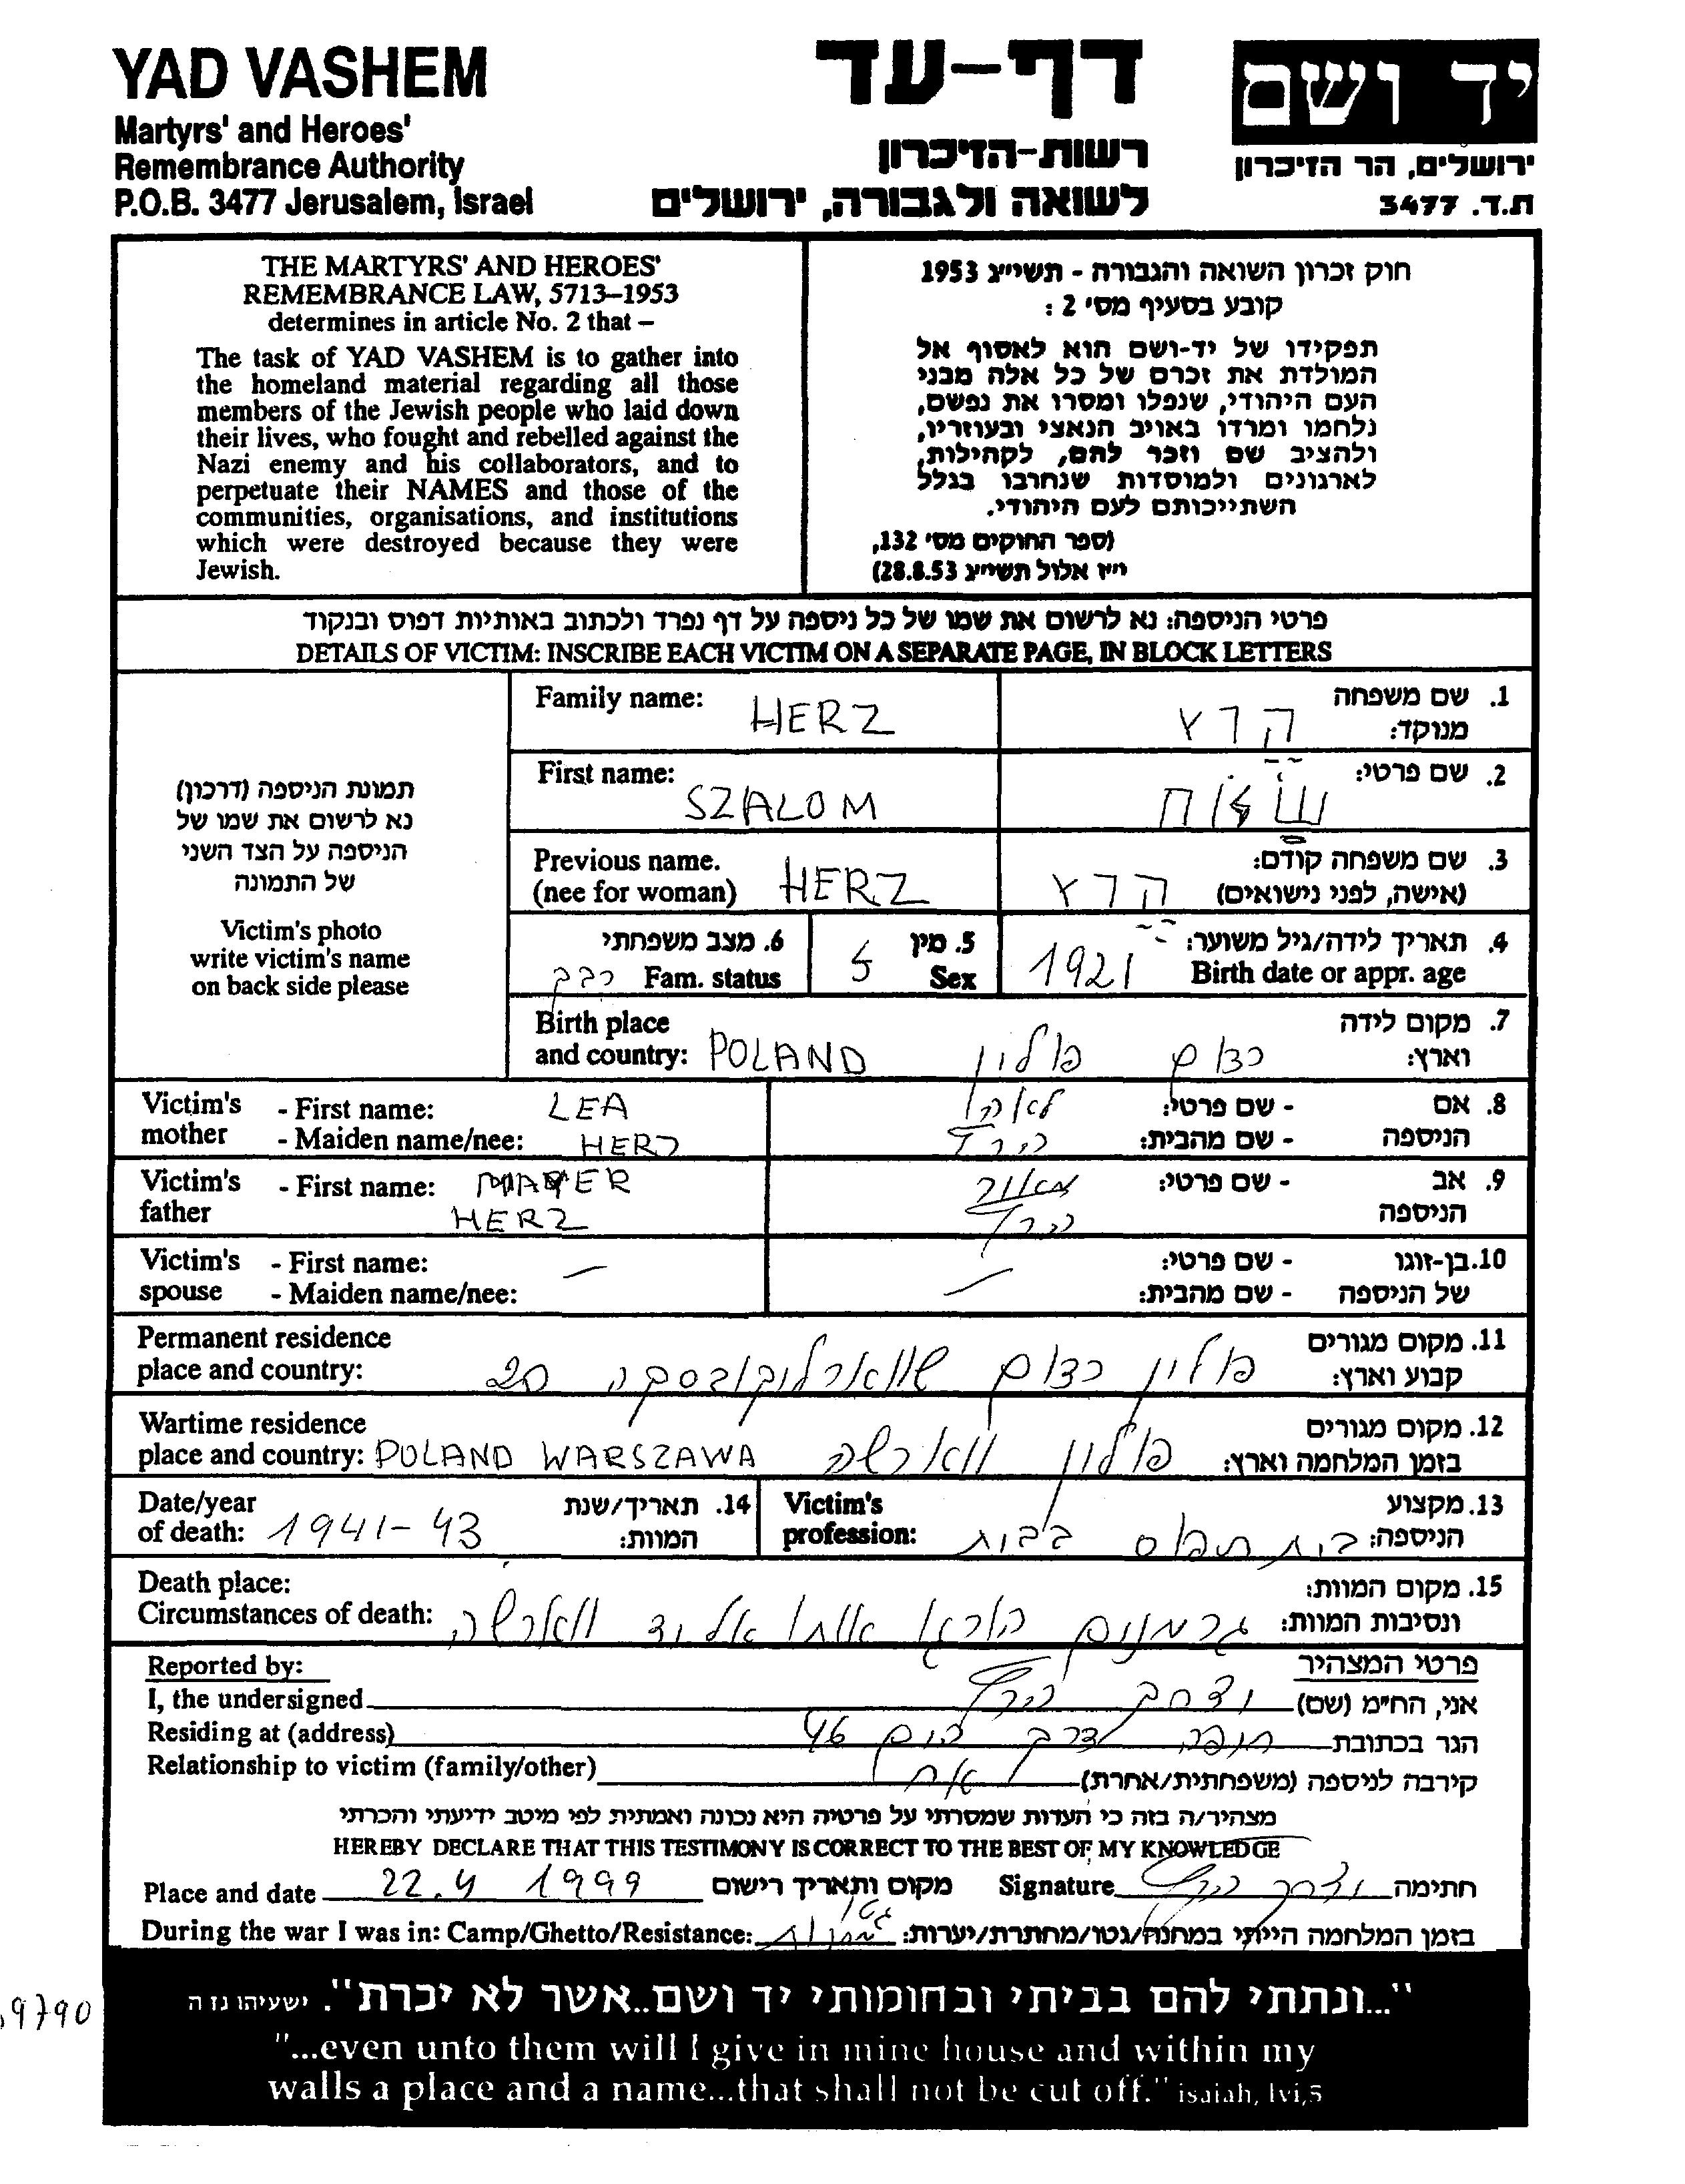 YAD VASHEM
Martyrs' and Heroes'
Remembrance Authority
P.O.B. 3477 Jerusalem, Israel
דף-עד
רשות-הזיכרון
לשואה ולגבורה, ירושלים
יד ושם
ירושלים, הר הזיכרון
ת.ד. 3477
THE MARTYRS' AND HEROES'
REMEMBRANCE LAW, 5713–1953
determines in article No. 2 that –
The task of YAD VASHEM is to gather into
the homeland material regarding all those
members of the Jewish people who laid down
their lives, who fought and rebelled against the
Nazi enemy and his collaborators, and to
perpetuate their NAMES and those of the
communities, organisations, and institutions
which were destroyed because they were
Jewish.
חוק זכרון השואה והגבורה - תשי״ג 1953
קובע בסעיף מס׳ 2 :
תפקידו של יד-ושם הוא לאסוף אל
המולדת את זכרם של כל אלה מבני
העם היהודי, שנפלו ומסרו את נפשם,
נלחמו ומרדו באויב הנאצי ובעוזריו,
ולהציב שם וזכר להם, לקהילות,
לארגונים ולמוסדות שנחרבו בגלל
השתייכותם לעם היהודי.
(ספר החוקים מס׳ 132,
י״ז אלול תשי״ג 28.8.53)
פרטי הניספה: נא לרשום את שמו של כל ניספה על דף נפרד ולכתוב באותיות דפוס ובנקוד
DETAILS OF VICTIM: INSCRIBE EACH VICTIM ON A SEPARATE PAGE, IN BLOCK LETTERS
תמונת הניספה (דרכון)
נא לרשום את שמו של
הניספה על הצד השני
של התמונה
Victim's photo
write victim's name
on back side please
Family name: HERZ
1. שם משפחה
מנוקד: הרץ
First name: SZALOM
2. שם פרטי:
Previous name.
(nee for woman) HERZ
3. שם משפחה קודם:
(אישה, לפני נישואים) הרץ
4. תאריך לידה/גיל משוער:
Birth date or appr. age 1921
5. מין
Sex
6. מצב משפחתי
Fam. status
Birth place
and country: POLAND
7. מקום לידה
וארץ: רדום פולין
Victim's mother - First name: LEA
- Maiden name/nee: HERZ
8. אם הניספה - שם פרטי: לאה
- שם מהבית: הרץ
Victim's father - First name: MAYER
HERZ
9. אב הניספה - שם פרטי: מאיר
הרץ
Victim's spouse - First name: –
- Maiden name/nee:
10. בן-זוגו של הניספה - שם פרטי: –
- שם מהבית:
Permanent residence
place and country:
11. מקום מגורים
קבוע וארץ: פולין רדום 20
Wartime residence
place and country: POLAND WARSZAWA
12. מקום מגורים
בזמן המלחמה וארץ: פולין ווארשה
Date/year
of death: 1941-43
14. תאריך/שנת
המוות:
Victim's
profession:
13. מקצוע
הניספה:
Death place:
Circumstances of death:
15. מקום המוות:
ונסיבות המוות: גרמנים הרגו אותו ווארשה
Reported by:
פרטי המצהיר
I, the undersigned
אני, הח״מ (שם) יצחק הרץ
Residing at (address)
הגר בכתובת חיפה דרך הים 46
Relationship to victim (family/other)
קירבה לניספה (משפחתית/אחרת) אח
מצהיר/ה בזה כי העדות שמסרתי על פרטיה היא נכונה ואמתית לפי מיטב ידיעתי והכרתי
HEREBY DECLARE THAT THIS TESTIMONY IS CORRECT TO THE BEST OF MY KNOWLEDGE
Place and date 22.4 1999 מקום ותאריך רישום
Signature יצחק הרץ חתימה
During the war I was in: Camp/Ghetto/Resistance:
בזמן המלחמה הייתי במחנה/גטו/מחתרת/יערות: גטו מחנות
"...ונתתי להם בביתי ובחומותי יד ושם..אשר לא יכרת". ישעיהו נו ה
"...even unto them will I give in mine house and within my
walls a place and a name...that shall not be cut off." isaiah, lvi,5
9790